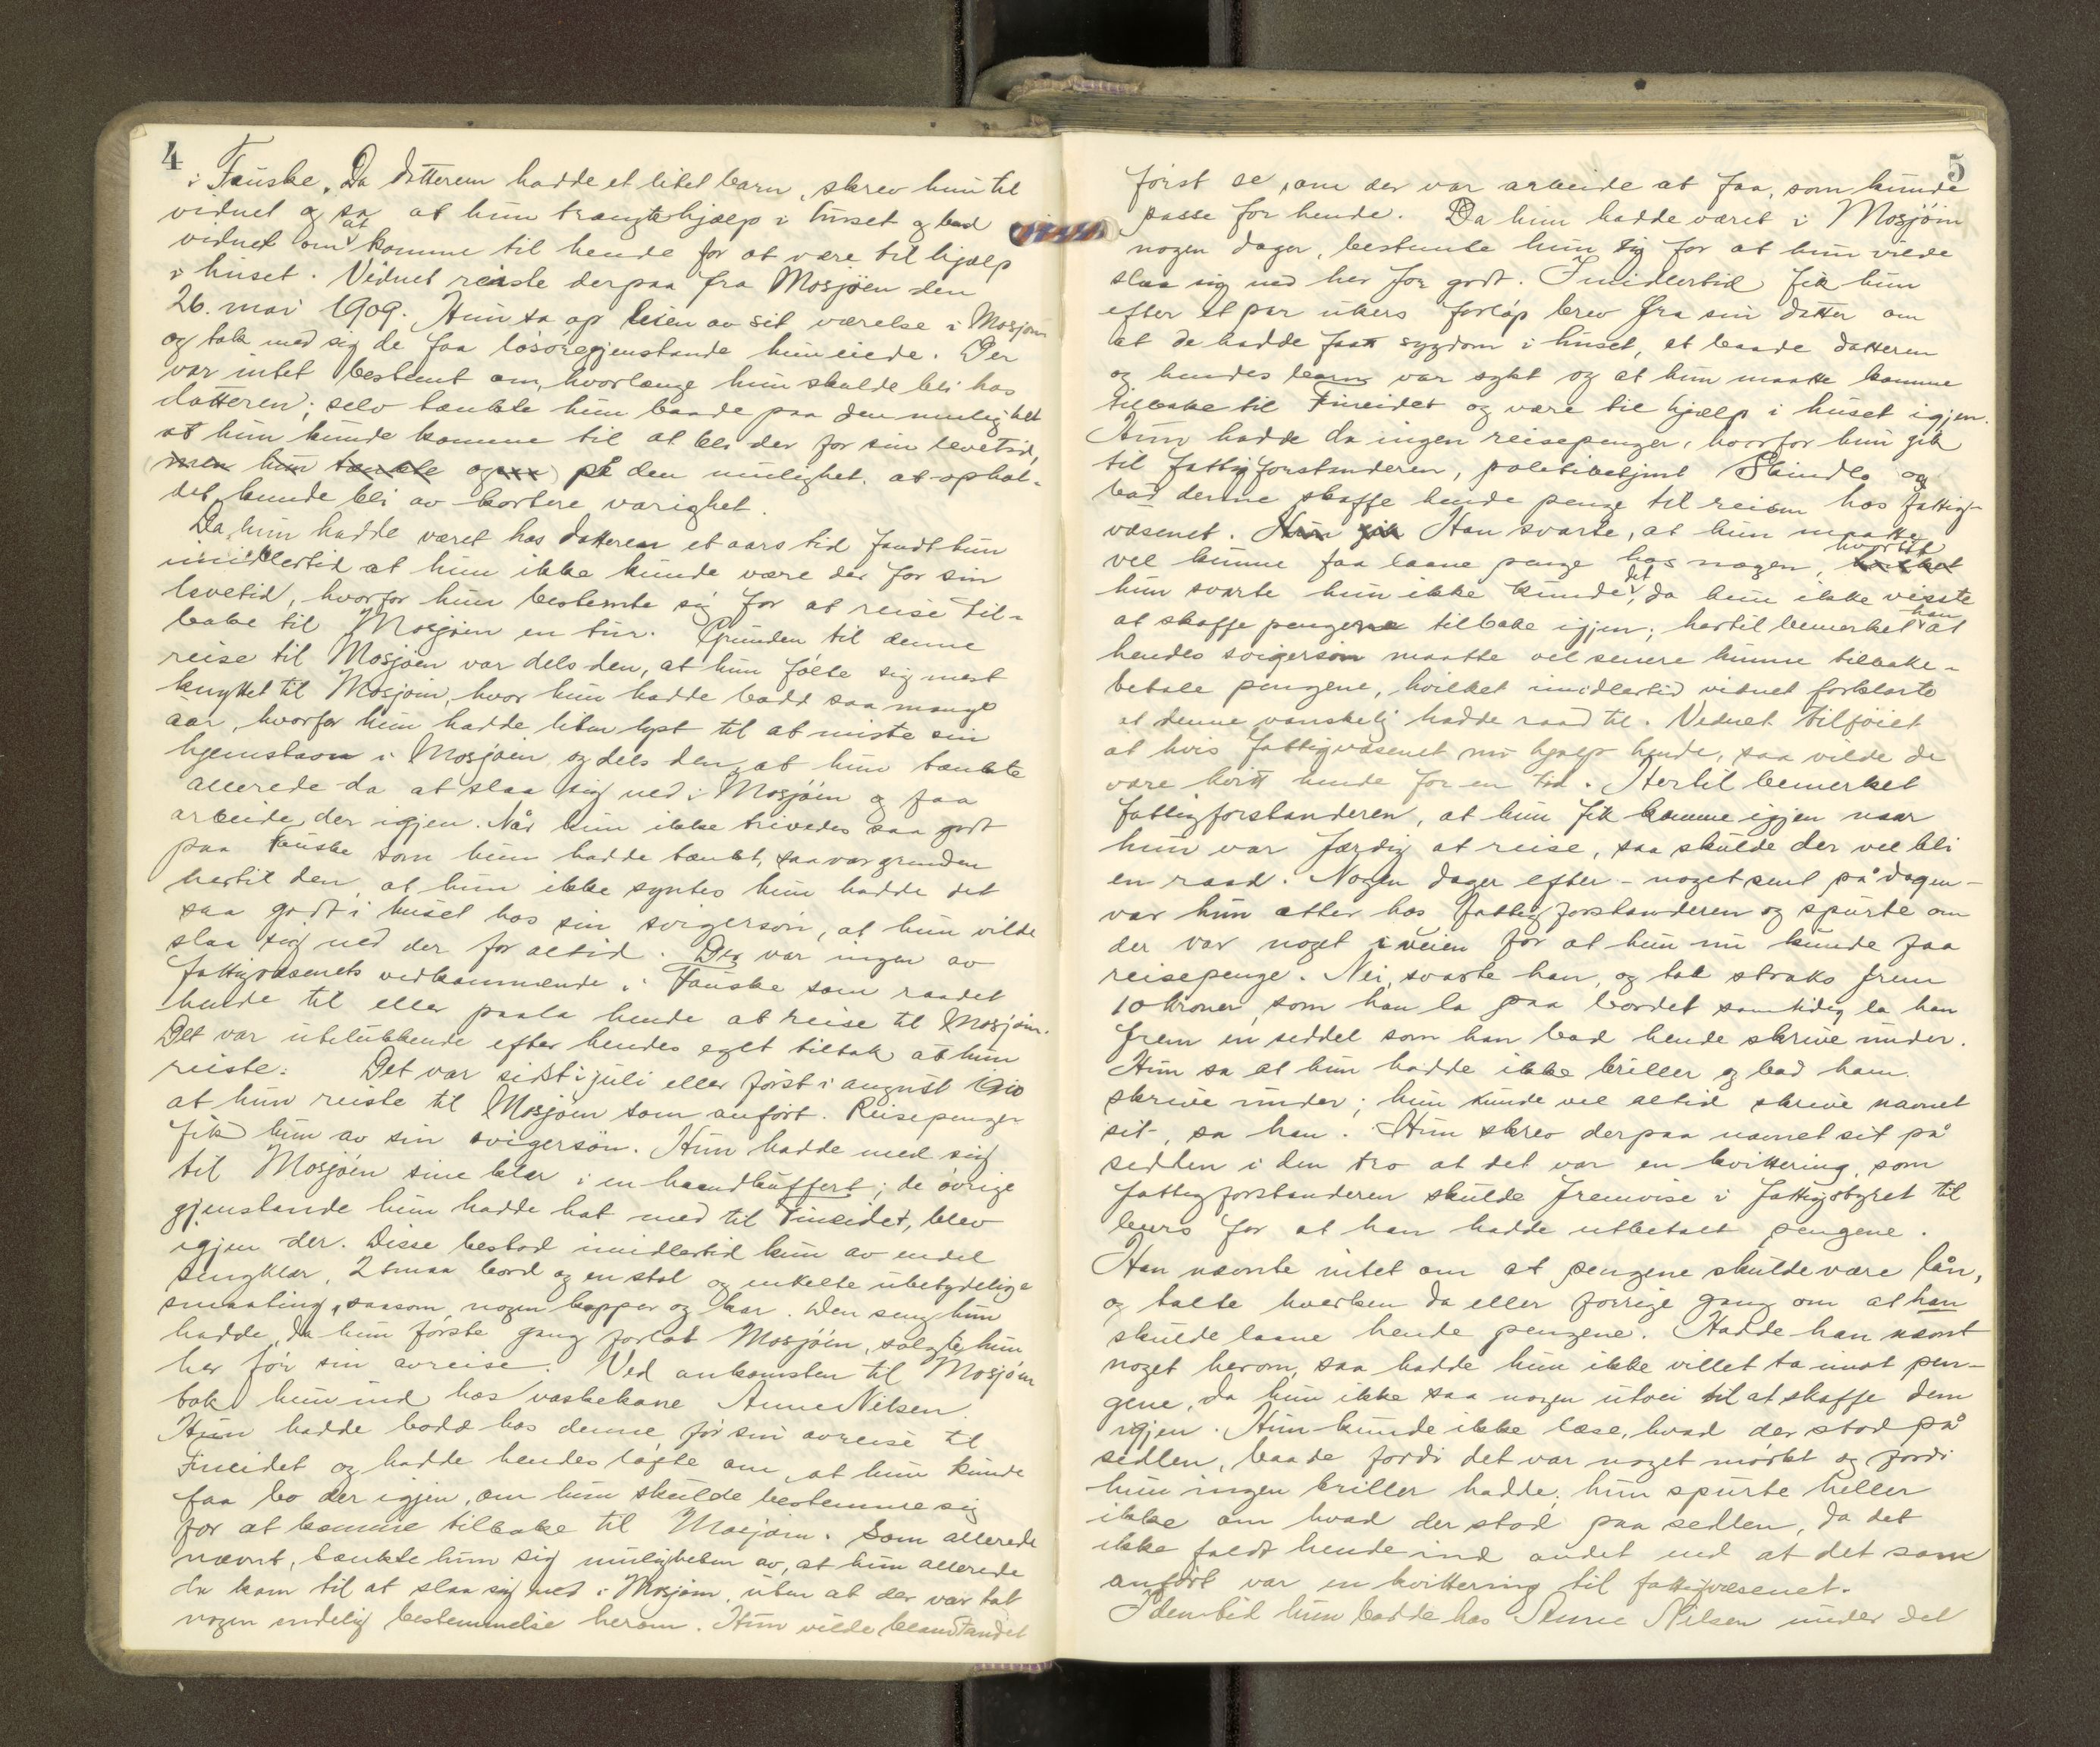 4
i Fauske. Da datteren hadde et litet barn, skrev hun til
vidnet og sa at hun trængte hjælp i huset og bad
vidnet om at komme til hende for at være til hjælp
i huset. Vidnet reiste derpaa fra Mosjøen den
26. mai 1909. Hun sa op leien av sit værelse i Mosjøen
og tok med sig de faa løsøregjenstande hun eiede. Der
var intet bestemt om, hvorlænge hun skulde bli hos
datteren; selv tænkte hun baade paa den mulighet
at hun kunde komme til at bli der for sin levetid,
(men hun tænkte ogsaa) på den mulighet, at ophol-
det kunde bli av kortere varighet.
Da hun hadde været hos datteren et aars tid fandt hun
imidlertid at hun ikke kunde være der for sin
levetid, hvorfor hun bestemte sig for at reise til-
bake til Mosjøen en tur. Grunden til denne
reise til Mosjøen var dels den, at hun følte sig mest
knyttet til Mosjøen, hvor hun hadde bodd saa mange
aar, hvorfor hun hadde liten lyst til at miste sin
hjemstavn i Mosjøen og dels den, at hun tænkte
allerede da at slaa sig ned i Mosjøen og faa
arbeide der igjen. Når hun ikke trivedes saa godt
paa Fauske som hun hadde tænkt, saa var grunden
hertil den, at hun ikke syntes hun hadde det
saa godt i huset hos sin svigersøn, at hun vilde
slaa sig ned der for altid. Der var ingen av
fattigvæsenets vedkommende i Fauske som raadet
hende til eller paala hende at reise til Mosjøen.
Det var utelukkende efter hendes eget tiltak at hun
reiste. Det var sidst i juli eller først i august 1910
at hun reiste til Mosjøen som anført. Reisepenger
fik hun av sin svigersøn. Hun hadde med sig
til Mosjøen sine klær i en haandkuffert; de øvrige
gjenstande hun hadde hat med til Fineidet, blev
igjen der. Disse bestod imidlertid kun av endel
sengklær, 2 smaa bord og en stol og enkelte ubetydelige
smaating, saasom nogen kopper og kar. Den seng hun
hadde, da hun første gang forlot Mosjøen, solgte hun
her før sin avreise. Ved ankomsten til Mosjøen
tok hun ind hos vaskekone Anne Nilsen.
Hun hadde bodd hos denne før sin avreise til
Fineidet og hadde hendes løfte om, at hun kunde
faa bo der igjen, om hun skulde bestemme sig
for at komme tilbake til Mosjøen. Som allerede
nævnt, tænkte hun sig muligheten av, at hun allerede
da kom til at slaa sig ned i Mosjøen, uten at der var tat
nogen endelig bestemmelse herom. Hun vilde blandt andet
5
først se, om der var arbeide at faa, som kunde
passe for hende. Da hun hadde været i Mosjøen
nogen dager, bestemte hun sig for at hun vilde
slaa sig ned her for godt. Imidlertid fik hun
efter et par ukers forløp brev fra sin datter om
at de hadde faat sygdom i huset, at baade datteren
og hendes barn var sykt og at hun maatte komme
tilbake til Fineidet og være til hjælp i huset igjen.
Hun hadde da ingen reisepenger, hvorfor hun gik
til fattigforstanderen, politibetjent Skindlo og
bad denne skaffe hende penge til reisen hos fattig-
væsenet. Hun gik Han svarte, at hun maatte
vel kunne faa laane penge hos nogen, hvortil
hun svarte hun ikke kunde det, da hun ikke visste
at skaffe pengene tilbake igjen; hertil bemerket han at
hendes svigersøn maatte vel senere kunne tilbake-
betale pengene, hvilket imidlertid vidnet forklarte
at denne vanskelig hadde raad til. Vidnet tilføiet
at hvis fattigvæsenet nu hjalp hende, saa vilde de
være kvitt hende for en tid. Hertil bemerket
fattigforstanderen, at hun fik komme igjen naar
hun var færdig at reise, saa skulde der vel bli
en raad. Nogen dager efter - noget sent på dagen -
var hun atter hos fattigforstanderen og spurte om
der var noget i veien for at hun nu kunde faa
reisepenge. Nei, svarte han, og tok straks frem
10 kroner, som han la paa bordet samtidig la han
frem en seddel som han bad hende skrive under.
Hun sa at hun hadde ikke briller og bad ham
skrive under; hun kunde vel altid skrive navnet
sit, sa han. Hun skrev derpaa navnet sit på
sedlen i den tro at det var en kvittering, som
fattigforstanderen skulde fremvise i fattigstyret til
bevis for at han hadde utbetalt pengene.
Han nævnte intet om at pengene skulde være lån,
og talte hverken da eller forrige gang om at han
skulde laane hende pengene. Hadde han nævnt
noget herom, saa hadde hun ikke villet ta imot pen-
gene, da hun ikke saa nogen utvei til at skaffe dem
igjen. Hun kunde ikke læse, hvad der stod på
sedlen, baade fordi det var noget mørkt og fordi
hun ingen briller hadde; hun spurte heller
ikke om hvad der stod paa sedlen, da det
ikke faldt hende ind andet end at det som
anført var en kvittering til fattigvæsenet.
I den tid hun bodde hos Anne Nilsen under det